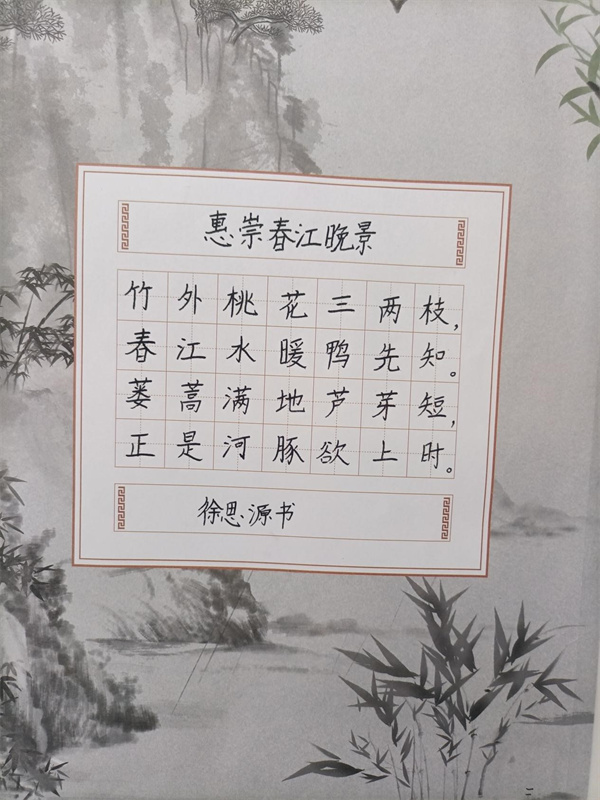 惠崇春江晚景
竹外桃花三两枝，
春江水暖鸭先知。
蒌蒿满地芦芽短，
正是河豚欲上时。
徐思源书